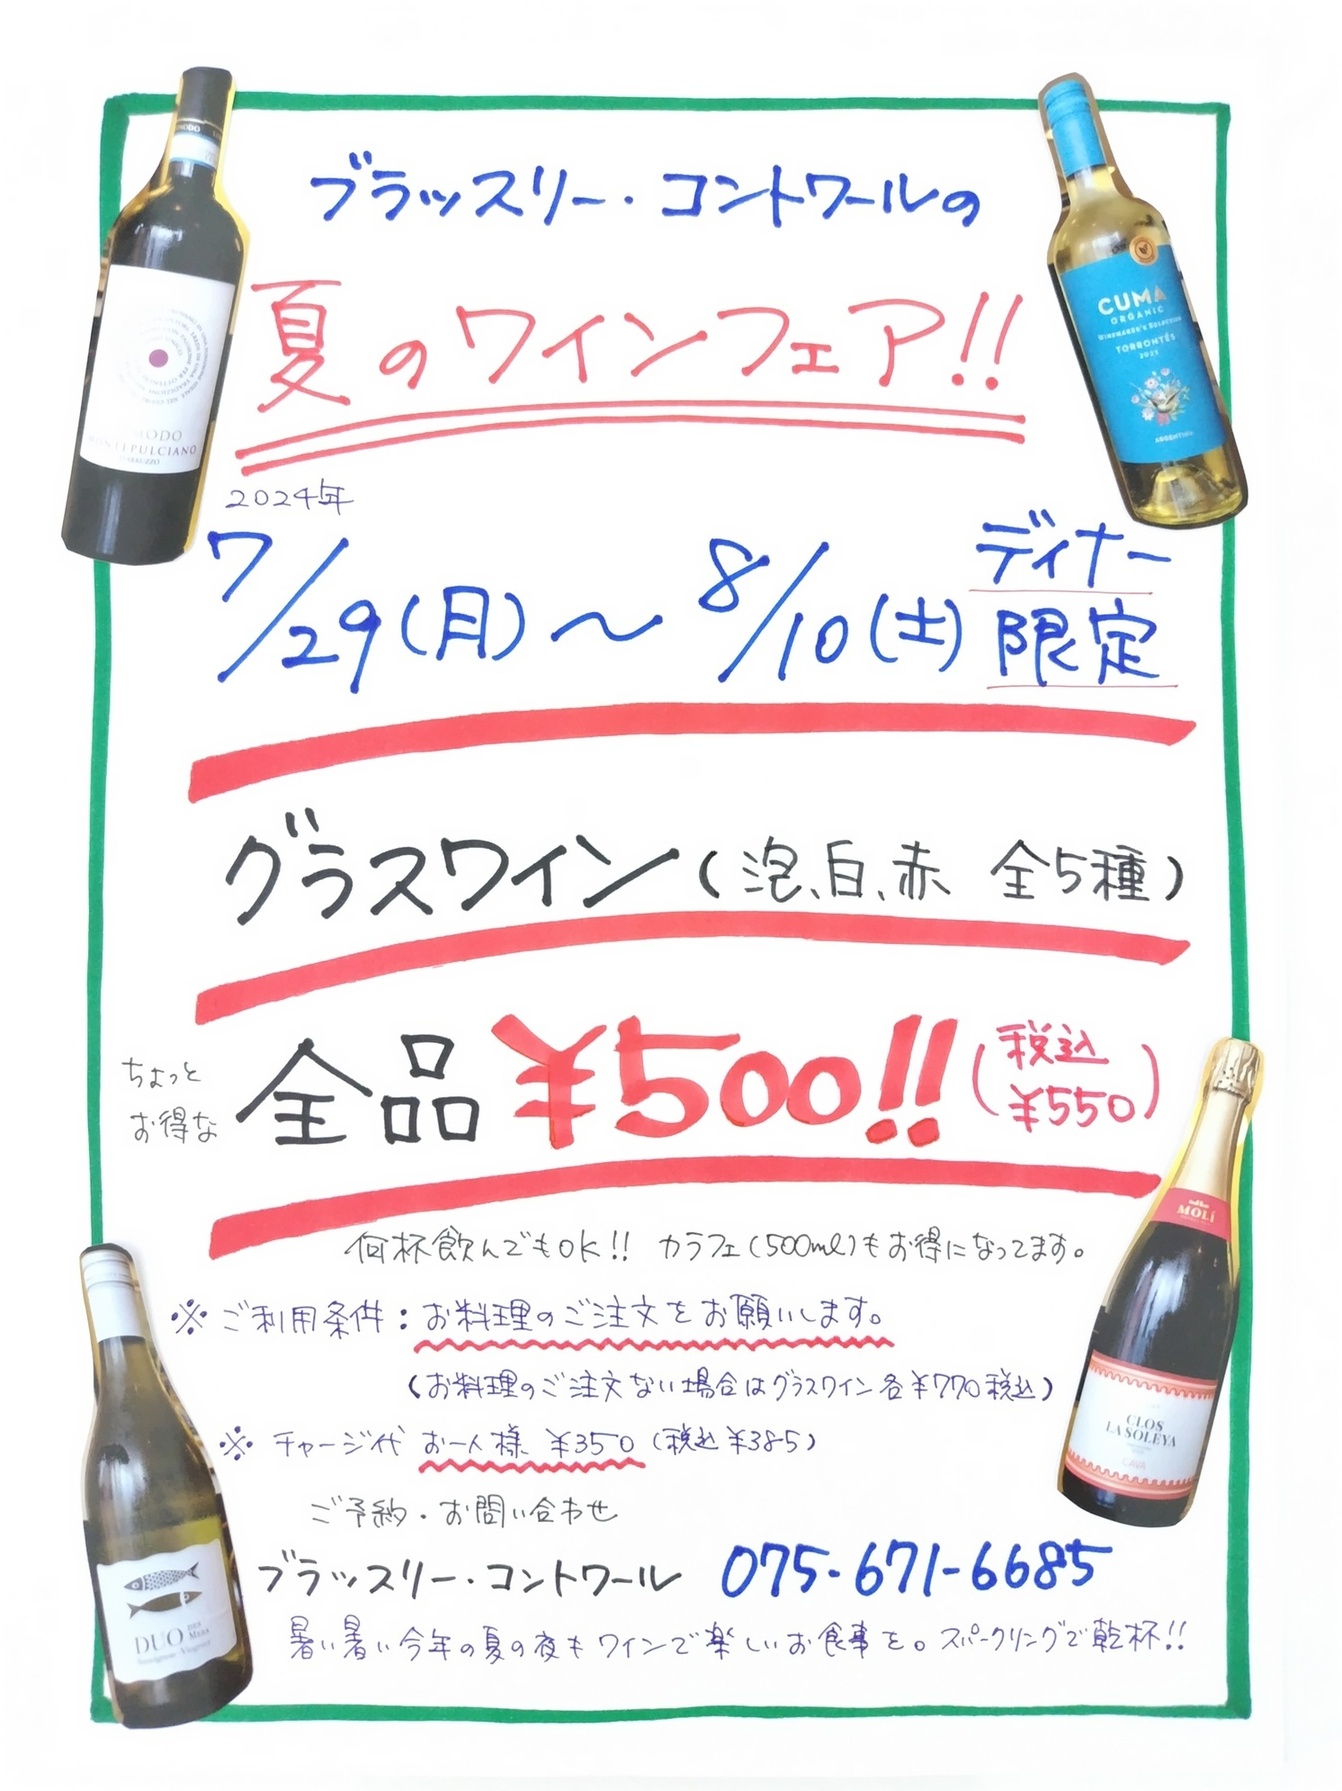 ブラッスリー・コントワールの
夏のワインフェア!!
2024年
7/29(月)～8/10(土)
ディナー
限定
グラスワイン(泡、白、赤 全5種)
ちょっと
お得な
全品 ¥500!!
(税込
¥550)
何杯飲んでもOK!! カラフェ(500ml)もお得になってます。
※ ご利用条件:お料理のご注文をお願いします。
(お料理のご注文ない場合はグラスワイン各¥770税込)
※ チャージ代 お一人様 ¥350(税込¥385)
ご予約・お問い合わせ
ブラッスリー・コントワール 075-671-6685
暑い暑い今年の夏の夜もワインで楽しいお食事を。スパークリングで乾杯!!
MONTEPULCIANO
CUMA
ORGANIC
WINEMAKER'S SELECTION
TORRONTÉS
ARGENTINA
MOLÍ
CLOS
LA SOLEYA
CAVA
DUO DES
MERS
Sauvignon-Viognier